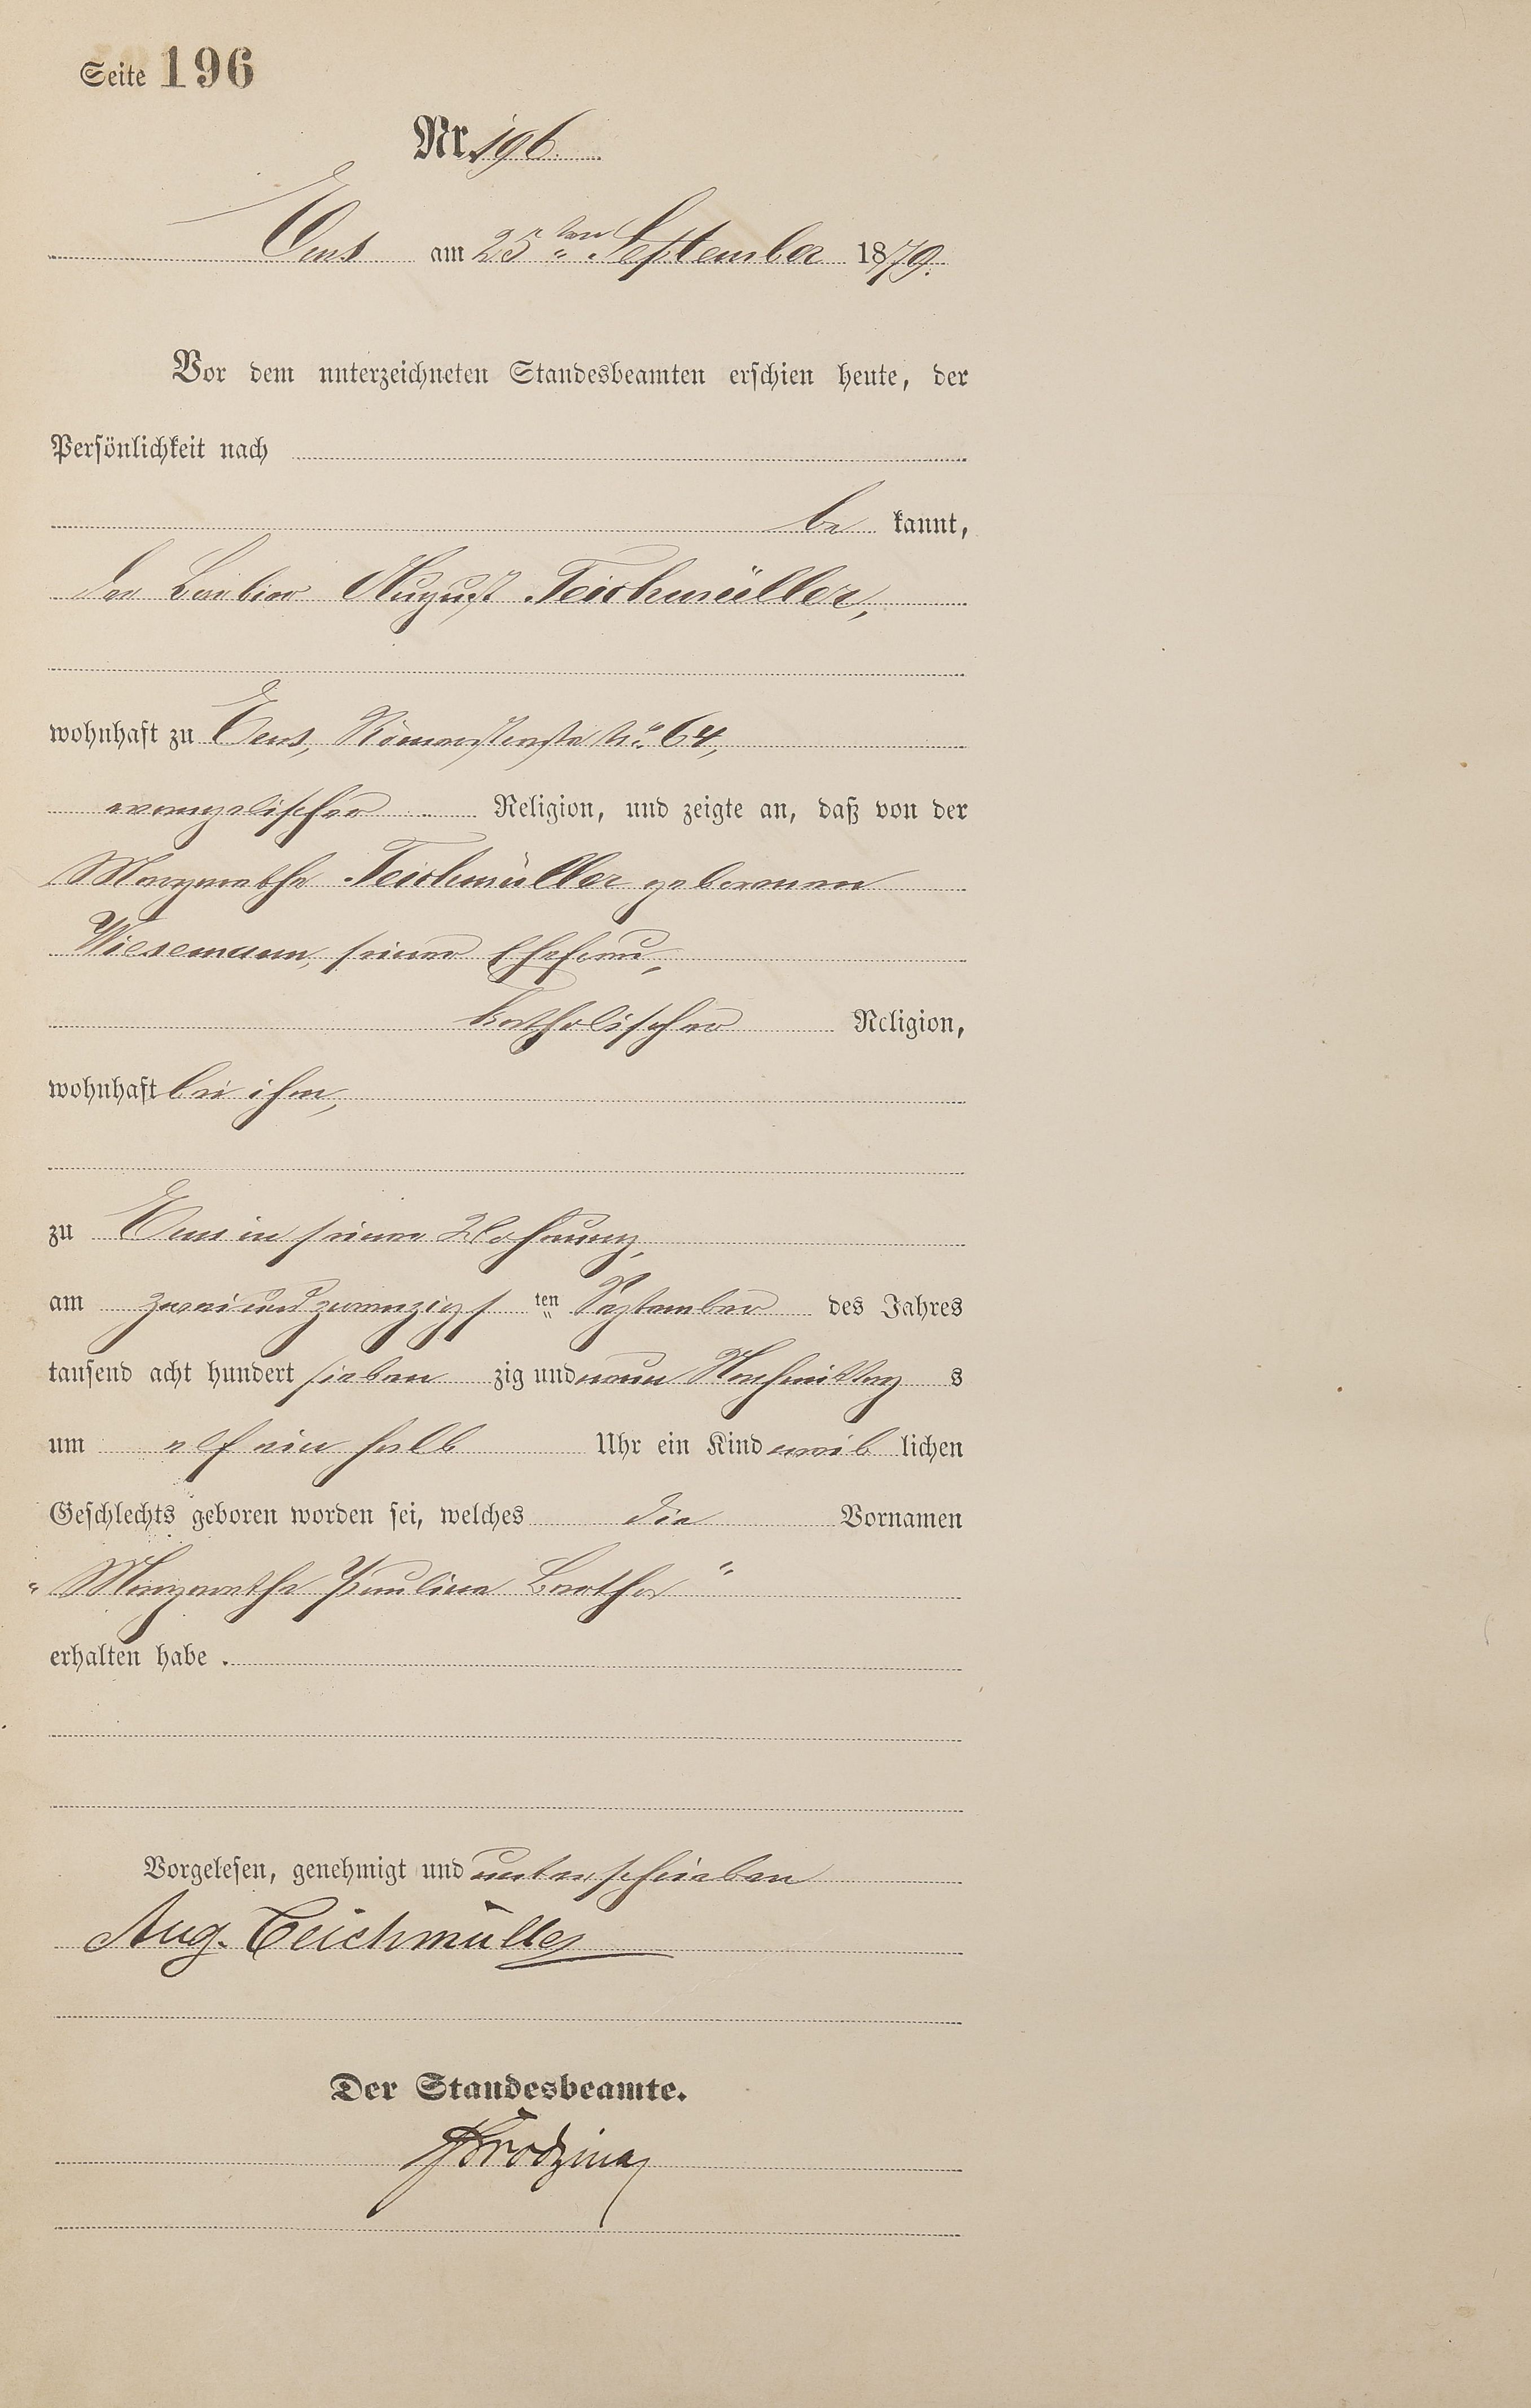 Seite 196
Nr. 196.
Ems am 25ten September 1879.
Vor dem unterzeichneten Standesbeamten erschien heute, der
Persönlichkeit nach
be kannt,
der Barbier August Teichmüller,
wohnhaft zu Ems, Römerstraße No 64,
evangelischer Religion, und zeigte an, daß von der
Margarethe Teichmüller geborenen
Wiesemann, seiner Ehefrau,
katholischer Religion,
wohnhaft bei ihm,
zu Ems in seiner Wohnung,
am zweiundzwanzigs ten September des Jahres
tausend acht hundert sieben zig und neun Nachmittag s
um elf ein halb Uhr ein Kind weib lichen
Geschlechts geboren worden sei, welches die Vornamen
"Margarethe Pauline Bertha"
erhalten habe.
Vorgelesen, genehmigt und unterschrieben
Aug. Teichmüller
Der Standesbeamte.